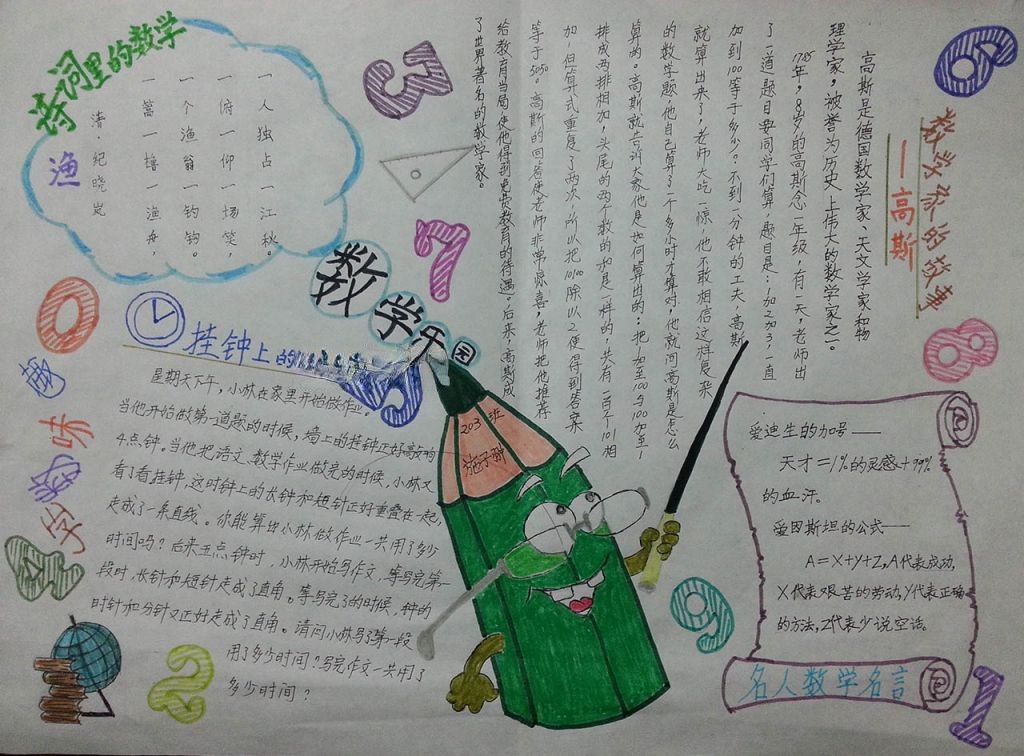 诗词里的数学
渔
清·纪晓岚
一人独占一江秋。
俯一仰一场笑，
一个渔翁一钓钩。
一篙一橹一渔舟，
3
7
6
数学家的故事
—高斯
高斯是德国数学家、天文学家和物
理学家，被誉为历史上伟大的数学家之一。
1785年，8岁的高斯念一年级，有一天，老师出
了一道题目要同学们算，题目是：1加2加3，一直
加到100等于多少？不到一分钟的工夫，高斯
就算出来了，老师大吃一惊，他不敢相信这样复杂
的数学题，他自己算了一个多小时才算对，他就问高斯是怎么
算的。高斯就告诉大家他是如何算出的：把1加至100与100加至1
排成两排相加，头尾的两个数的和是一样的，共有一百个101相
加，但算式重复了两次，所以把10100除以2便得到答案
等于5050。高斯的回答使老师非常惊喜，老师把他推荐
给教育当局，使他得到免费教育的待遇。后来，高斯成
了世界著名的数学家。
数学乐园
0
8
趣味数学
挂钟上的
5
星期天下午，小林在家里开始做作业。
当他开始做第一道题的时候，墙上的挂钟正好敲响
4点钟。当他把语文、数学作业做完的时候，小林又
看了看挂钟，这时钟上的长钟和短针正好重叠在一起，
走成了一条直线。你能算出小林做作业一共用了多少
时间吗？后来五点钟时，小林开始写作文，等写完第一
段时，长针和短针走成了直角。等写完了的时候，钟的
时针和分针又正好走成了直角。请问小林写了第一段
用了多少时间？写完作文一共用了
多少时间？
203班
施子翀
爱迪生的加号——
天才=1%的灵感+99%
的血汗。
爱因斯坦的公式——
A=X+Y+Z，A代表成功，
X代表艰苦的劳动，Y代表正确
的方法，Z代表少说空话。
名人数学名言
4
2
9
1